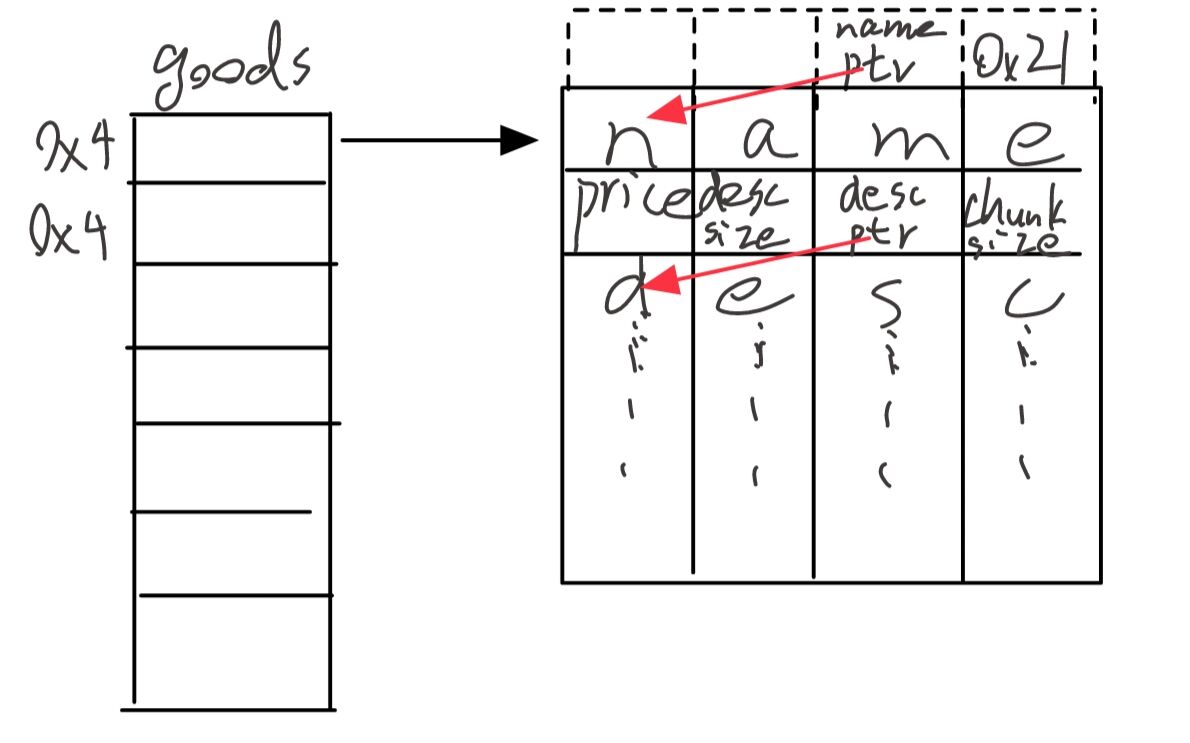 goods
0x4
0x4
name ptr
0x21
n a m e
price
desc size
desc ptr
chunk size
d e s c